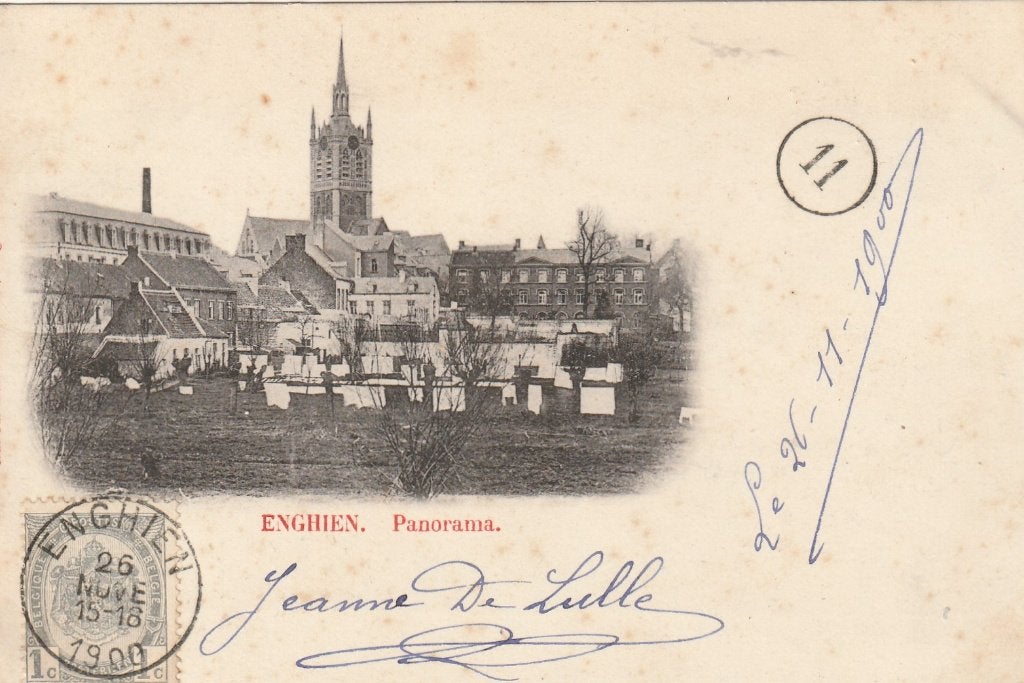 11
Le 26-11-1900
ENGHIEN. Panorama.
Jeanne De Lulle
ENGHIEN
26
NOVE
15-18
1900
BELGIQUE
BELGIË
1c 1c